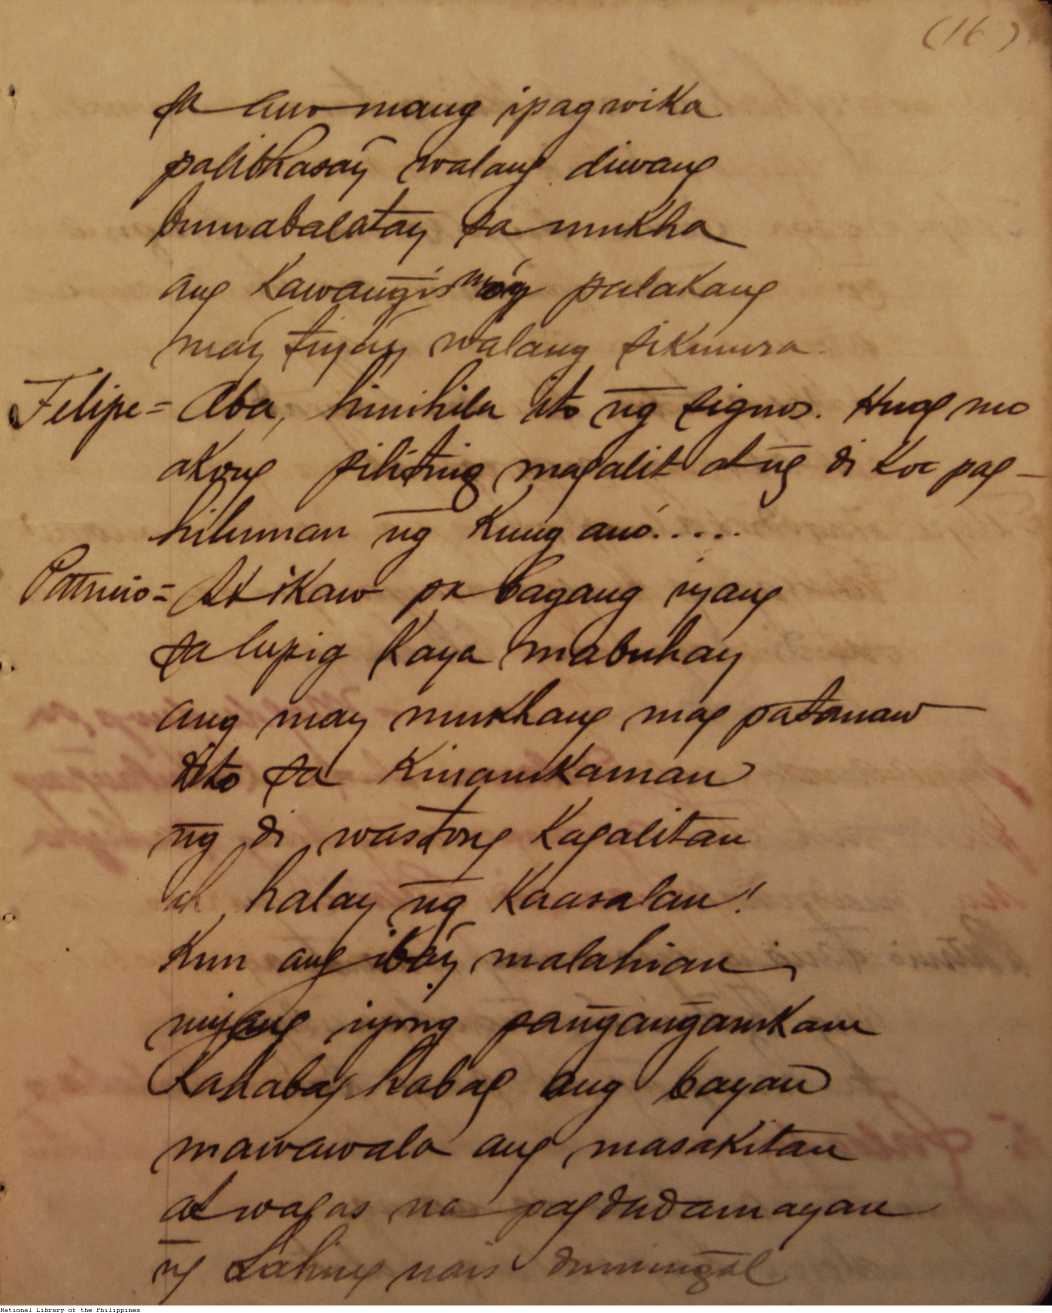 (16)
sa ano mang ipagwika
palibhasa'y walang diwang
bumabalatay sa mukha
ang kawangis mo'y palakang
may tiyá'y walang sikmura.
Felipe = Aba, hinihila ito n̄g signos. Huag mo
akong piliting magalit at n̄g di koc pag-
hiluman n̄g kung anó.....
Patricio = At ikaw pa bagang iyang
sa lupig kaya mabuhay
ang may mukhang mag patanaw
dito sa kinamkaman
n̄g di wastong kagalitan
ah, halay n̄g kaasalan!
Kun ang iba'y malahian
niyang iyong pan̄gan̄gamkam
kahabag habag ang bayan
mawawala ang masakitan
at wagas na pagdadamayan
n̄g Lahing nais dumin̄gal
National Library of the Philippines